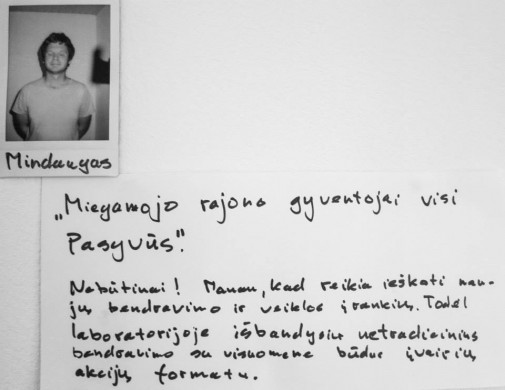 Mindaugas
„Miegamojo rajono gyventojai visi
Pasyvūs".
Nebūtinai! Manau, kad reikia ieškoti nau-
jų bendravimo ir veiklos įrankių. Todėl
laboratorijoje išbandysiu netradicinius
bendravimo su visuomene būdus įvairių
akcijų formatu.